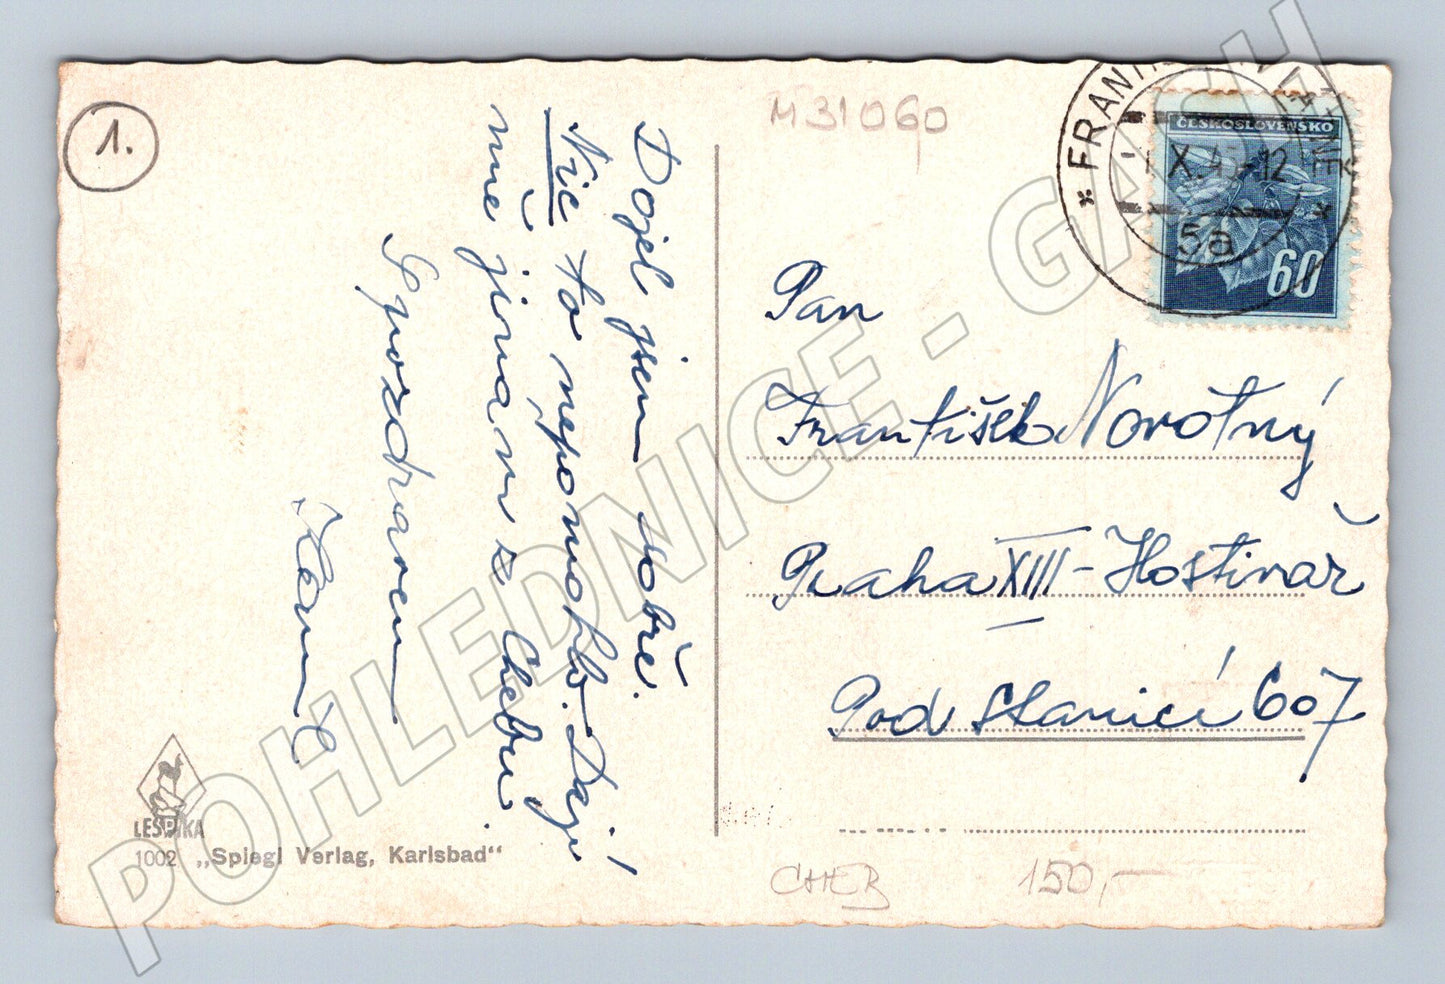 1.
M31060
Dojel jsem dobře.
Nic to nepomohlo. Dají
mne jinam z Chebu.
S pozdravem
LESPIKA
1002 „Spiegl Verlag, Karlsbad“
FRANTIŠKOVY LÁZNĚ
X.45-12
5a
ČESKOSLOVENSKO
60
Pan
František Novotný
Praha XIII - Hostivař
Pod stanicí 607
CHEB
150,-
POHLEDNICE - GASH